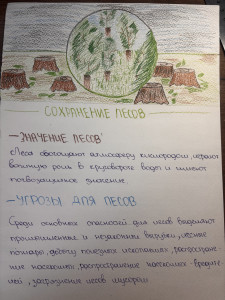 СОХРАНЕНИЕ ЛЕСОВ
— ЗНАЧЕНИЕ ЛЕСОВ
«Леса обогащают атмосферу кислородом, играют
важную роль в круговороте воды и имеют
почвозащитное значение.
— УГРОЗЫ ДЛЯ ЛЕСОВ
Среди основных опасностей для лесов выделяют
промышленные и незаконные вырубки, лесные
пожары, добычу полезных ископаемых, распростране-
ние насекомых-вредите-
лей, загрязнение лесов мусором»